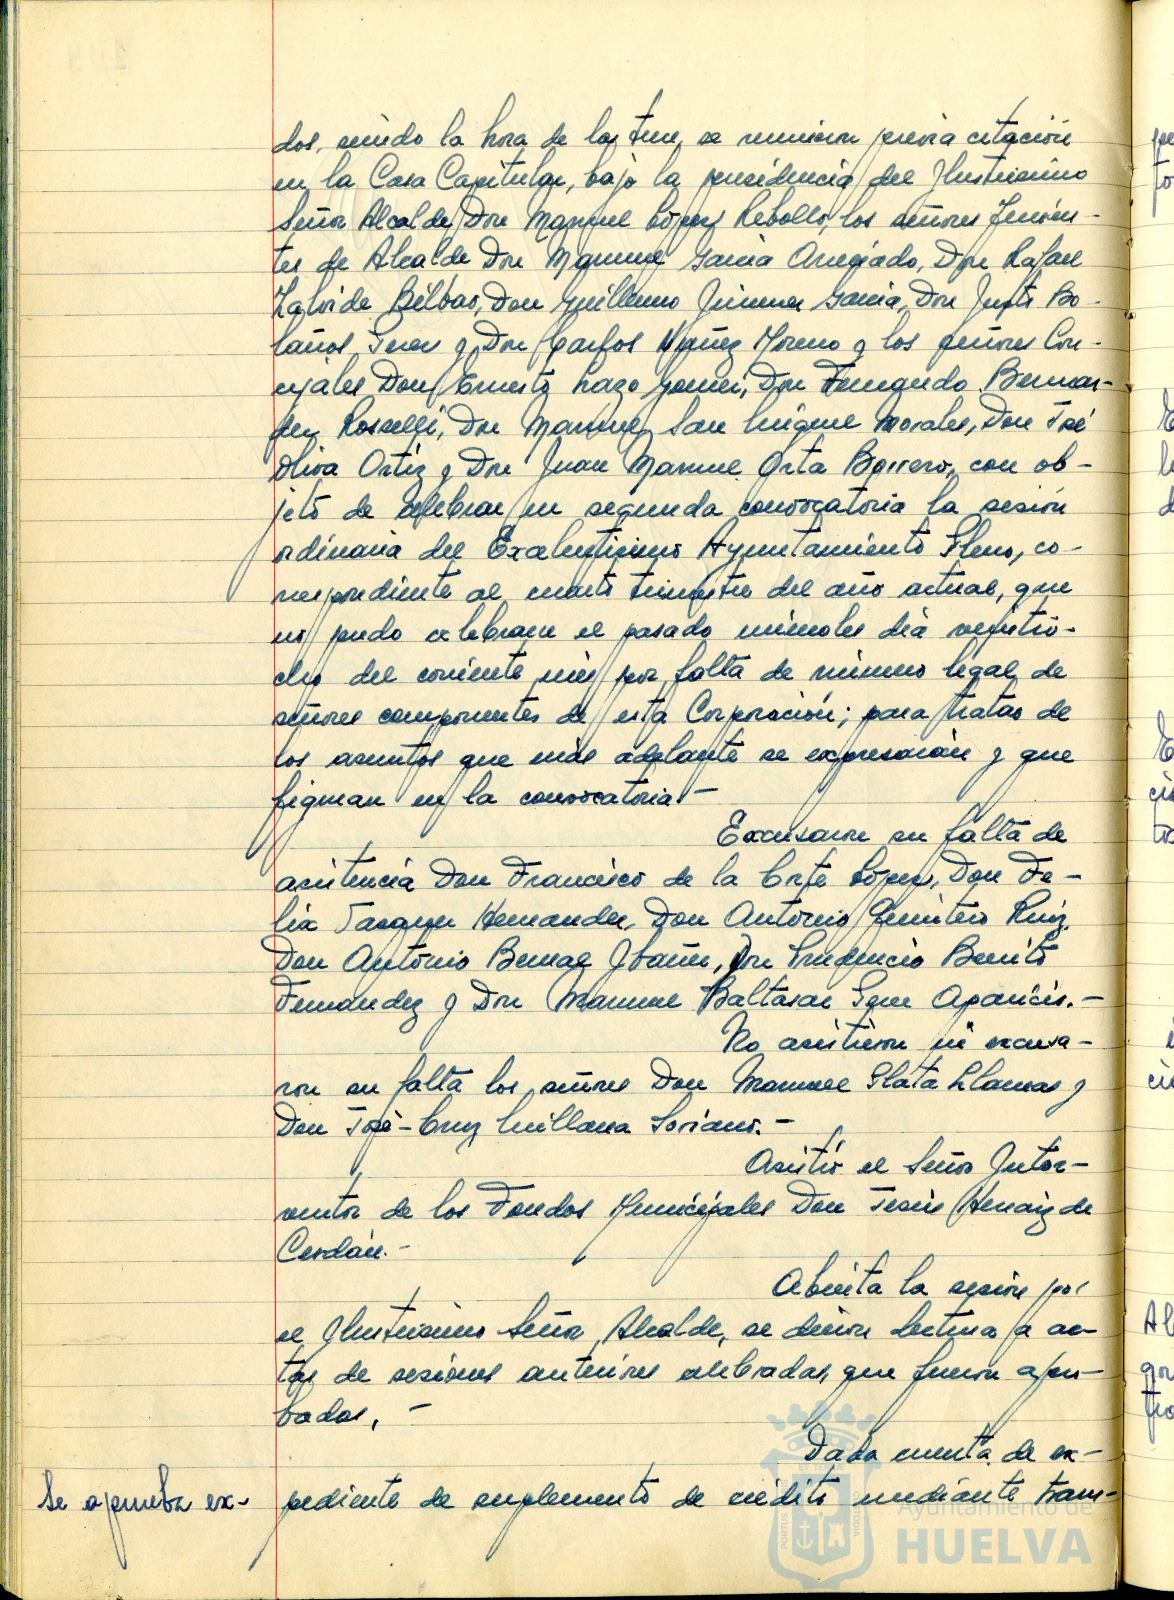 dos, siendo la hora de las trece, se reunieron previa citación
en la Casa Capitular, bajo la presidencia del Ilustrísimo
Señor Alcalde, Don Manuel López Rebollo, los señores Tenien-
tes de Alcalde Don Manuel García Don Rafael
Bilbao, Don Guillermo Jimenez García, Don Justo Bo-
laños Perez y Don Carlos Núñez Moreno y los señores Con-
cejales Don Ernesto Lazo Gomez, Don Fernando Bermu-
dez Rosselli, Don Manuel San Miguel Morales, Don José
Oliva Ortiz y Don Juan Manuel Orta Borrero, con ob-
jeto de celebrar en segunda convocatoria la sesión
ordinaria del Excelentísimo Ayuntamiento Pleno, co-
rrespondiente al cuarto trimestre del año actual, que
no pudo celebrarse el pasado miércoles día veintio-
cho del corriente mes por falta de número legal de
señores componentes de esta Corporación; para tratar de
los asuntos que más adelante se expresarán y que
figuran en la convocatoria.-
Excusaron su falta de
asistencia Don Francisco de la Corte López, Don Fe-
lix Vazquez Hernandez, Don Antonio Quintero Ruiz,
Don Antonio Bernal Ibañez, Don Prudencio Benito
Fernandez y Don Manuel Baltasar Aparicio.-
No asistieron ni excusa-
ron su falta los señores Don Manuel Plata Llamas y
Don José-Cruz Soriano.-
Asistió el Señor Inter-
ventor de los Fondos Municipales Don Jesús Herraiz de
Cerdán.-
Abierta la sesión por
el Ilustrísimo Señor Alcalde, se dieron lectura a ac-
tas de sesiones anteriores celebradas, que fueron apro-
badas.-
Dada cuenta de ex-
Se aprueba ex- pediente de suplemento de crédito mediante trans-
Ayuntamiento de
HUELVA